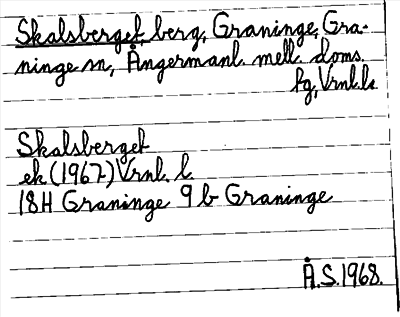 Skalsberget, berg, Graninge, Gra-
ninge sn, Ångermanl. mell. doms.
fg, Vrnl. l.
Skalsberget
ek (1967) Vrnl. l.
18H Graninge 9 b Graninge
Å.S. 1968.